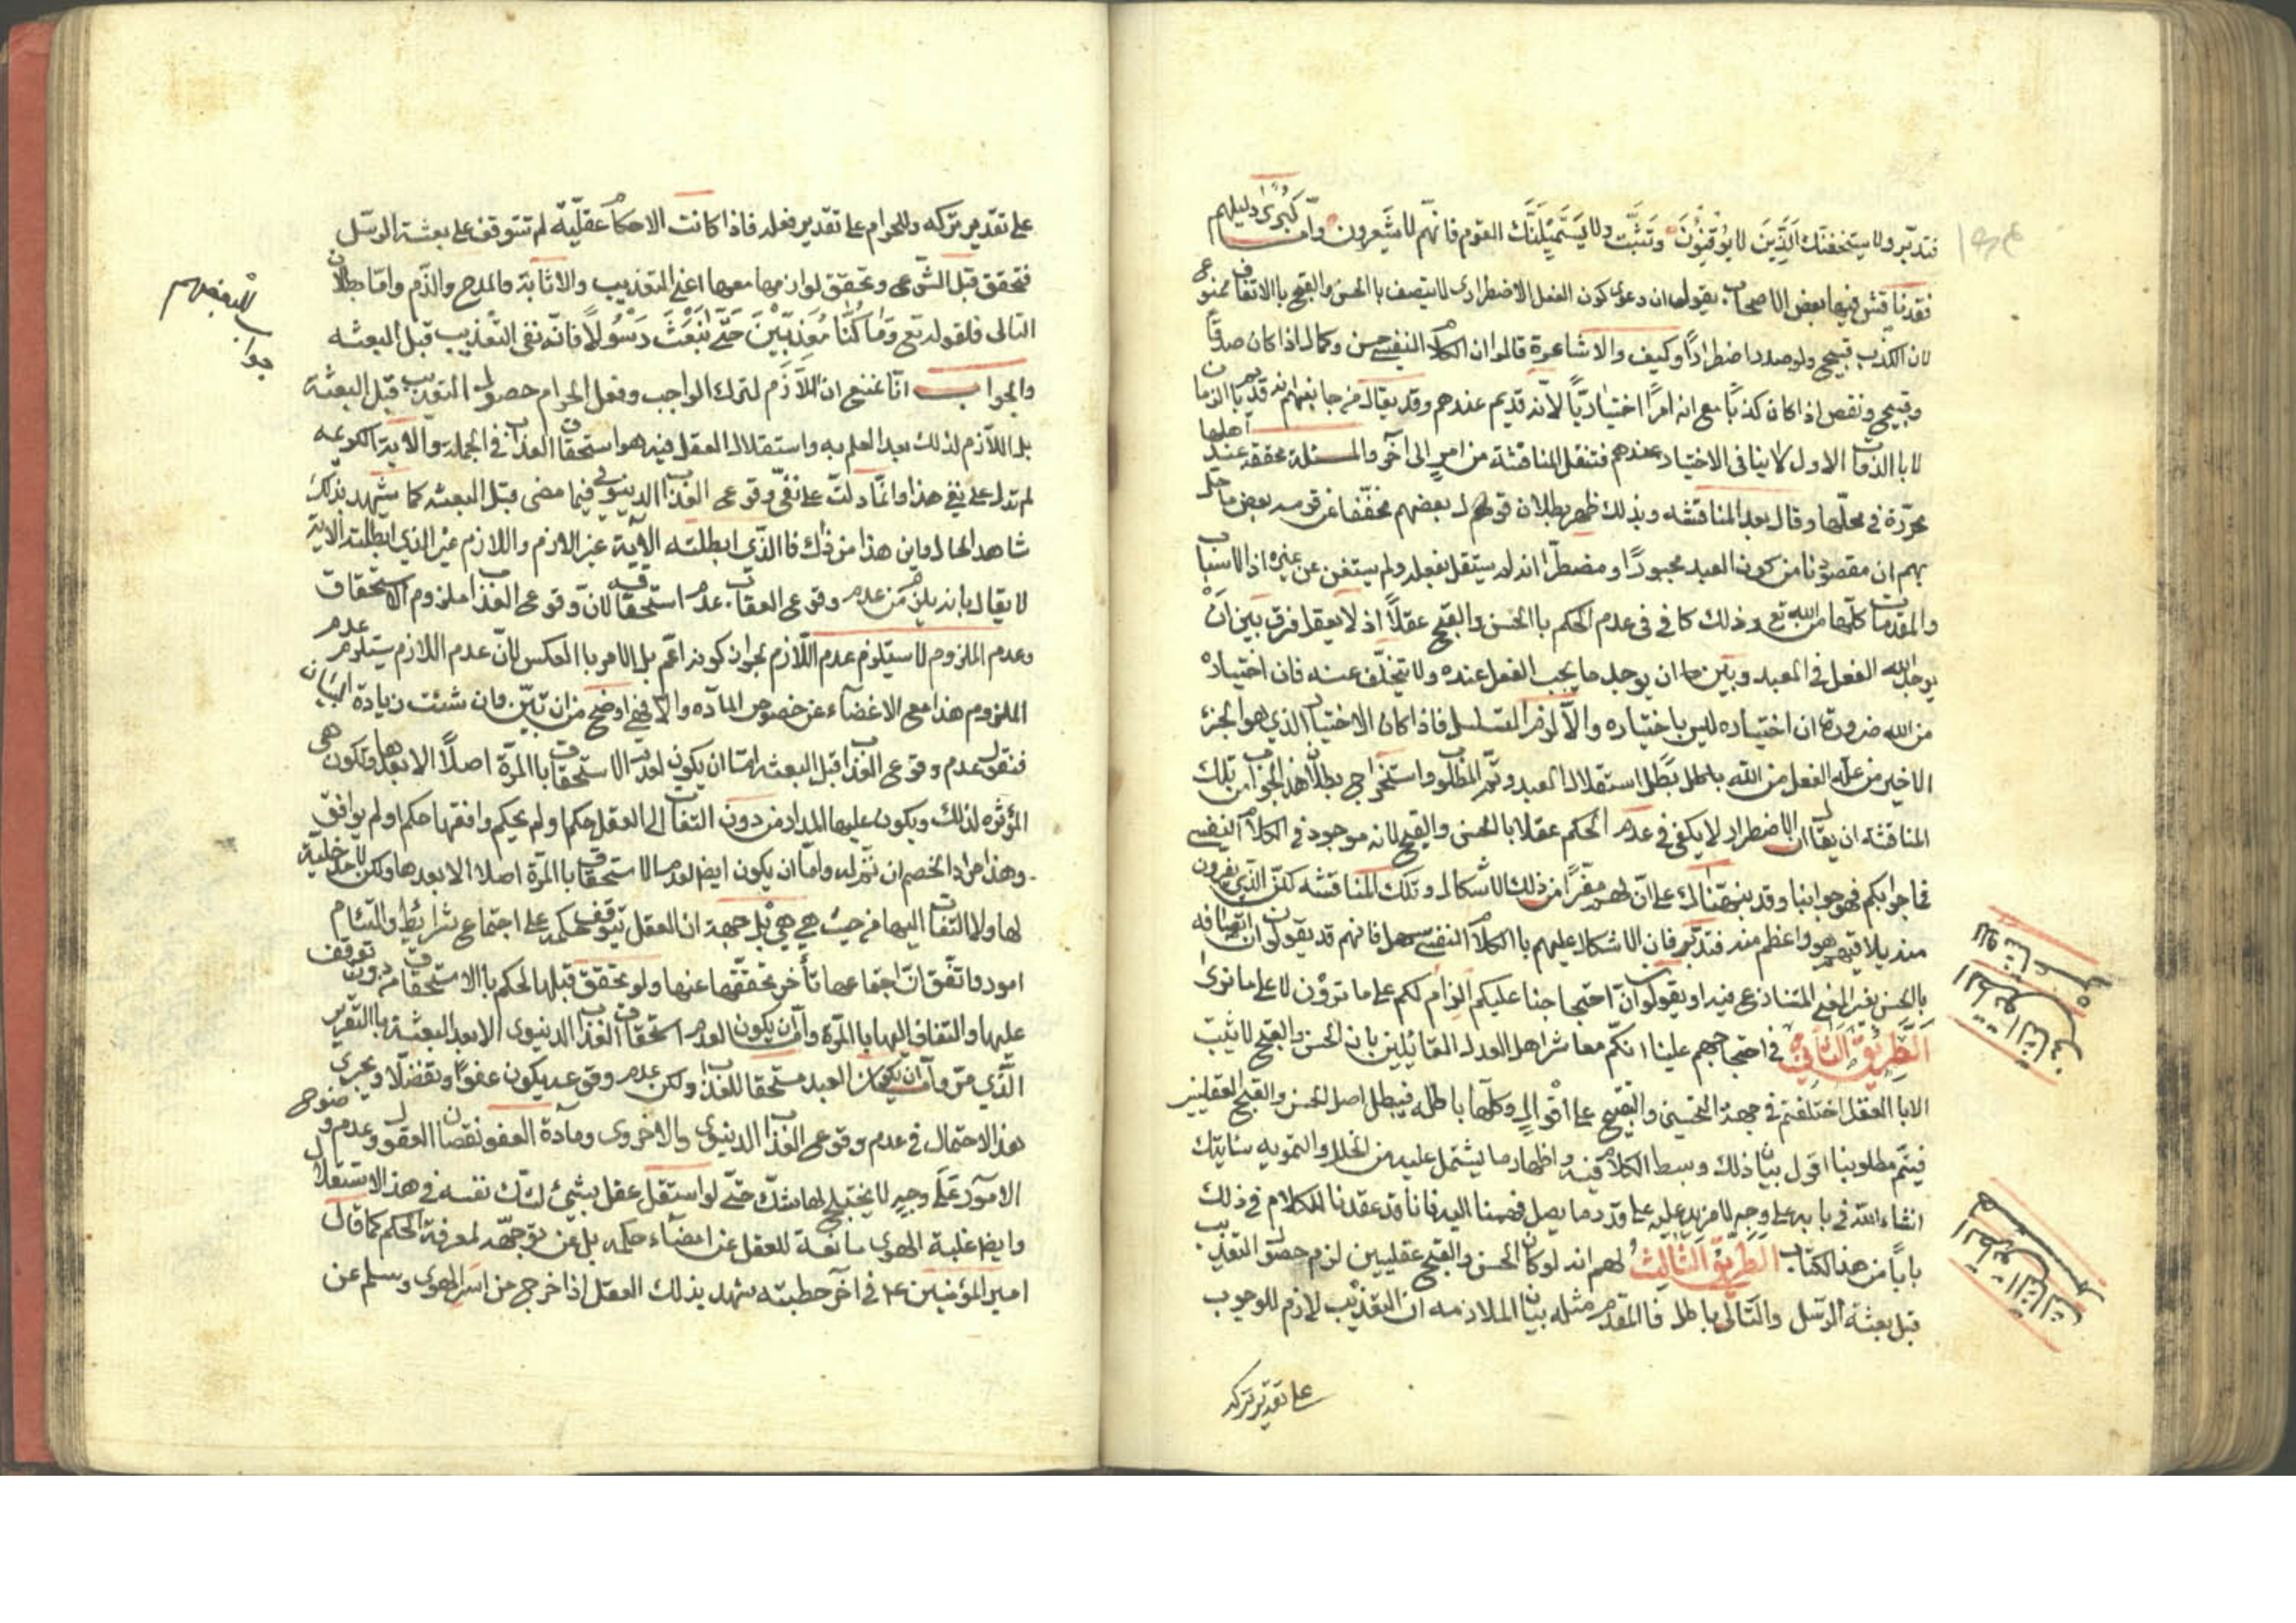 فتدبّر ولا يستخفنّك الذين لا يوقنون وتثبّت ولا يستميلنّك القوم فانهم لا يشعرون وامّا كبرى دليلهم
فقد ناقش فيها بعض الاصحاب بقوله ان دعوى كون الفعل الاضطرارى لا يتصف بالحسن والقبح بالاتفاق ممنوع
لان الكذب قبيح ولو صدر اضطرارًا وكيف والاشاعرة قالوا ان الكلام النفسى حسن وكمال اذا كان صدقًا
وقبيح ونقص اذا كان كذبًا مع انه ليس امرًا اختياريًا لانّه قديم عندهم وقد يقال من جانبهم انه قديم بالزمان
لا بالذات الاول لا ينافى الاختيار عندهم فتنقل المناقشة من امر الى آخر والمسئلة محققة عند اهلها
محرّرة فى محلّها وقال بعد المناقشة وبذلك ظهر بطلان قول بعضهم مخفّفا عن قومه بعض ما حل
بهم ان مقصودنا من كون العبد مجبورًا ومضطرّا انه لم يستقل بفعله ولم يستغن عن غيره اذ الاسباب
والمقدمات كلّها من الله تع وذلك كاف فى عدم الحكم بالحسن والقبح عقلًا اذ لا يعقل فرق بين ان
يوجد الله الفعل فى العبد وبين ان يوجد ما يجب الفعل عنده ولا يتخلّف عنه فان اختياره
من الله ضرورة ان اختياره ليس باختياره والّا لزم التسلسل فاذا كان الاختيار الذي هو الجزء
الاخير من علّة الفعل من الله بطل استقلال العبد وتم المطلوب واستخراج بطلان هذا الجواب من تلك
المناقشه ان يقال ان الاضطرار لا يكفى فى عدم الحكم عقلا بالحسن والقبح لانه موجود فى الكلام النفسى
فما جوابكم فهو جوابنا وقد نبهناك على انّ لهم مفرًّا من ذلك الاشكال وتلك المناقشه لكن الذي يفرون
منه يلاقيهم هو واعظم منه فتدبّر فان الاشكال عليهم بالكلام النفسى سهل فانهم قد يقولون ان اتصافه
بالحسن بغير المعنى المتنازع فيه او يقولون انّ احتجاجنا عليكم الزام لكم على ما ترون لا على ما نرى
الطريق الثانى فى احتجاجهم علينا انكم معاشر اهل العدل القائلين بان الحسن والقبح لا يثبت
الا بالعقل اختلفتم فى جهة التحسين والتقبيح على اقوال وكلّها باطله فيبطل اصل الحسن والقبح العقليين
فيتم مطلوبنا اقول بيان ذلك وبسط الكلام فيه واظهار ما يشتمل عليه من الخلل والتمويه سيأتيك
انشاء الله فى بابه على وجه لا مزيد عليه على قدر ما يصل فهمنا اليه فانا قد عقدنا للكلام فى ذلك
بابًا من هذا الكتاب الطريق الثالث لهم انه لو كان الحسن والقبح عقليين لزم حصول التعذيب
قبل بعثة الرسل والتالى باطل فالمقدم مثله بيان الملازمه ان التعذيب لازم للوجوب
على تقدير تركه
على تقدير تركه وللحرام على تقدير فعله فاذا كانت الاحكام عقليّة لم تتوقف على بعثة الرسل
فتحقق قبل الشرع وتحقق لوازمها معها اعنى التعذيب والاثابة والمدح والذم وامّا بطلان
التالى فلقوله تع وما كنّا معذبين حتى نبعث رسولًا فانّه نفى التعذيب قبل البعثه
والجواب انّا نمنع ان اللازم لترك الواجب وفعل الحرام حصول التعذيب قبل البعثة
بل اللازم لذلك بعد العلم به واستقلال العقل فيه هو استحقاق العذاب فى الجملة والاية الكريمه
لم تدل على نفى هذا وانما دلّت على نفى وقوع العذاب الدينوى فيما مضى قبل البعثه كما يشهد بذلك
شاهد الحال واين هذا من ذاك فالذى ابطلته الآية غير اللازم واللازم غير الذي ابطلته الاية
لا يقال بانه يلزم من عدم وقوع العقاب عدم استحقاقه لانّ وقوع العذاب ملزوم الاستحقاق
وعدم الملزوم لا يستلزم عدم اللازم لجواز كونه اعّم بل الامر بالعكس لانّ عدم اللازم يستلزم عدم
الملزوم هذا مع الاغضآء عن خصوص المآده والا فهى اوضح من ان تبيّن فان شئت زيادة البيان
فنقول عدم وقوع العذاب قبل البعثه امّا ان يكون لعدم الاستحقاق بالمرّة اصلًا الا بعدها وتكون هى
المؤثره لذلك ويكون عليها المدار من دون التفات الى العقل حكم او لم يحكم وافقها حكم او لم يوافق
وهذا مراد الخصم ان تمّ له وامّا ان يكون ايضا لعدم الاستحقاق بالمرّة اصلا الا بعدها ولكن لا مدخلية
لها ولا التفات اليها من حيث هى هى بل جهة ان العقل يتوقف حكمه على اجتماع شرائط والتئام
امور واتفق انّ اجتماعها تأخر تحققها عنها ولو تحقق قبلها لحكم بالاستحقاق من دون توقف
عليها والتفات اليها بالمرّة وامّا ان يكون لعدم استحقاق العذاب الدنيوى الا بعد البعثة بالتقرير
الذي مرّ وامّا ان يكون العبد مستحقا للعذاب ولكن عدم وقوعه يكون عفوًا وتفضّلًا ويجرى
هذا الاحتمال فى عدم وقوع العذاب الدينوى والاخروى ومآدة العفو نقصان العقول وعدم وضوح
الامور على وجه لا يختبلج لها شك حتى لو استقل عقل بشئ لشك نفسه فى هذا الاستقلال
وايضا غلبة الهوى مانعة للعقل عن امضآء حكمه بل عن توجهه لمعرفة الحكم كما قال
امير المؤمنين ع فى آخر خطبته شهد بذلك العقل اذا خرج من اسر الهوى وسلم عن